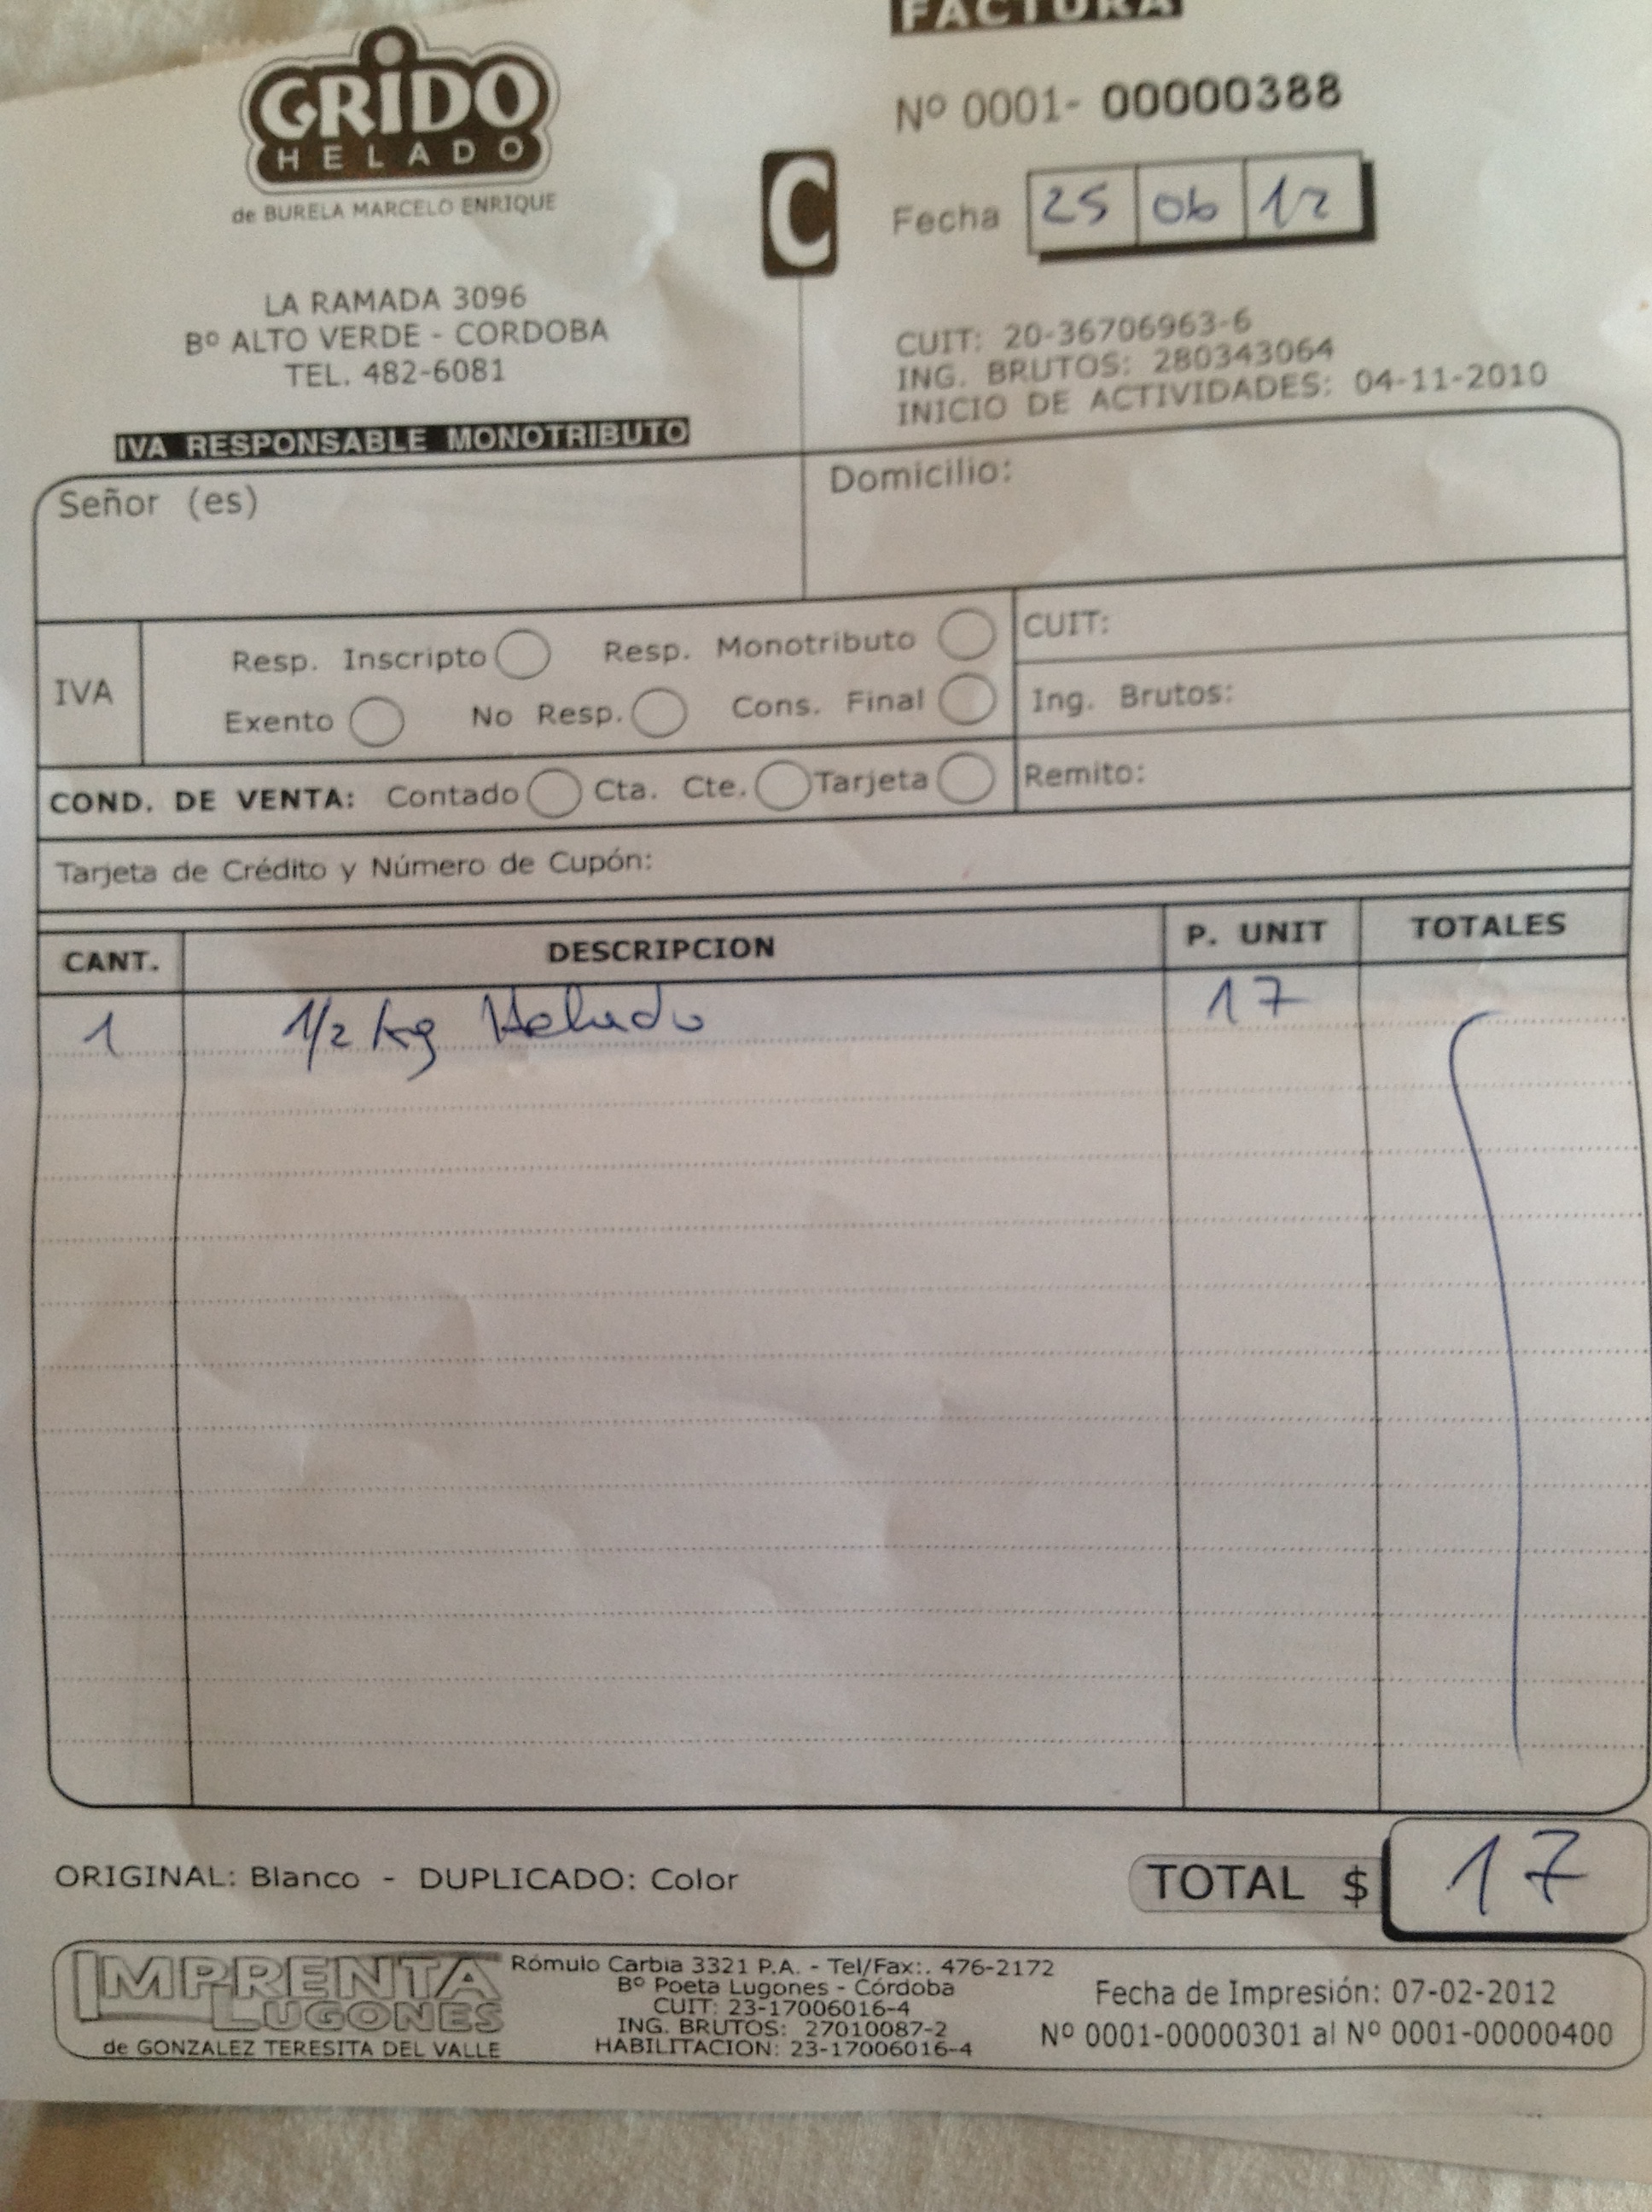 FACTURA
GRIDO
HELADO
de BURELA MARCELO ENRIQUE
LA RAMADA 3096
Bº ALTO VERDE - CORDOBA
TEL. 482-6081
IVA RESPONSABLE MONOTRIBUTO
C
Nº 0001- 00000388
Fecha 25 06 12
CUIT: 20-36706963-6
ING. BRUTOS: 280343064
INICIO DE ACTIVIDADES: 04-11-2010
Señor (es)
Domicilio:
IVA
Resp. Inscripto Resp. Monotributo
Exento No Resp. Cons. Final
CUIT:
Ing. Brutos:
COND. DE VENTA: Contado Cta. Cte. Tarjeta
Remito:
Tarjeta de Crédito y Número de Cupón:
CANT. DESCRIPCION P. UNIT TOTALES
1 1/2 kg Helado 17
ORIGINAL: Blanco - DUPLICADO: Color
TOTAL $ 17
IMPRENTA
LUGONES
de GONZALEZ TERESITA DEL VALLE
Rómulo Carbia 3321 P.A. - Tel/Fax:. 476-2172
Bº Poeta Lugones - Córdoba
CUIT: 23-17006016-4
ING. BRUTOS: 27010087-2
HABILITACION: 23-17006016-4
Fecha de Impresión: 07-02-2012
Nº 0001-00000301 al Nº 0001-00000400